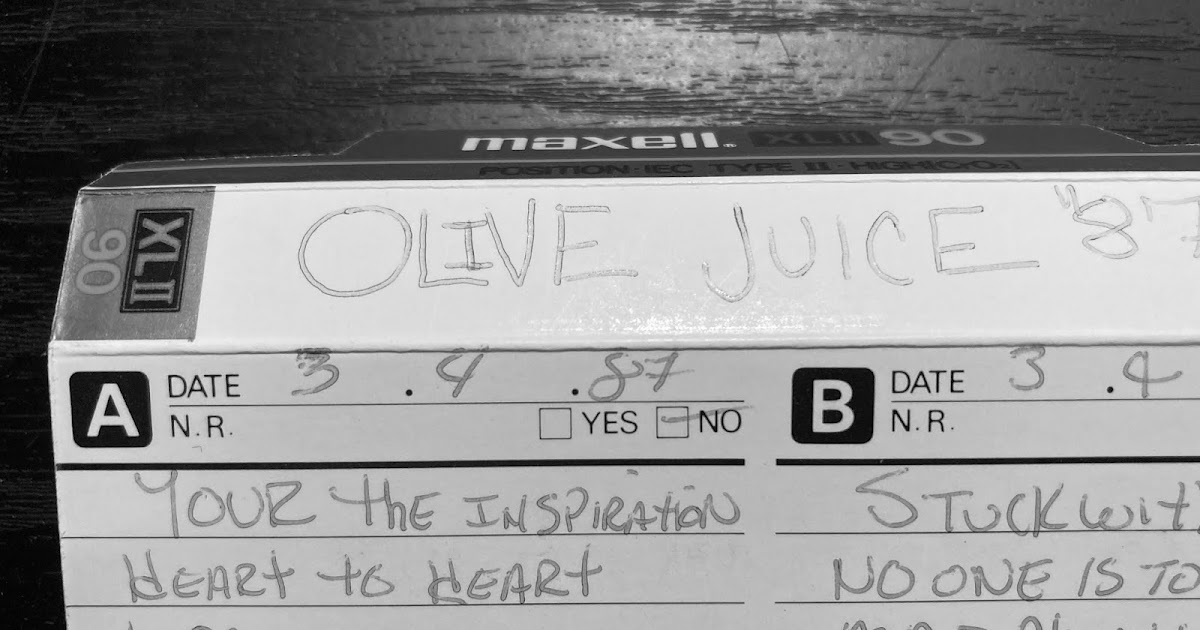 maxell XLII 90
POSITION·IEC TYPE II·HIGH(CrO₂)
XLII 90
OLIVE JUICE "87
A DATE 3 . 4 . 87
N.R. YES NO
YOUR the INSPIRATION
HEART to HEART
B DATE 3 . 4
N.R.
STUCK wit
NO ONE IS TO